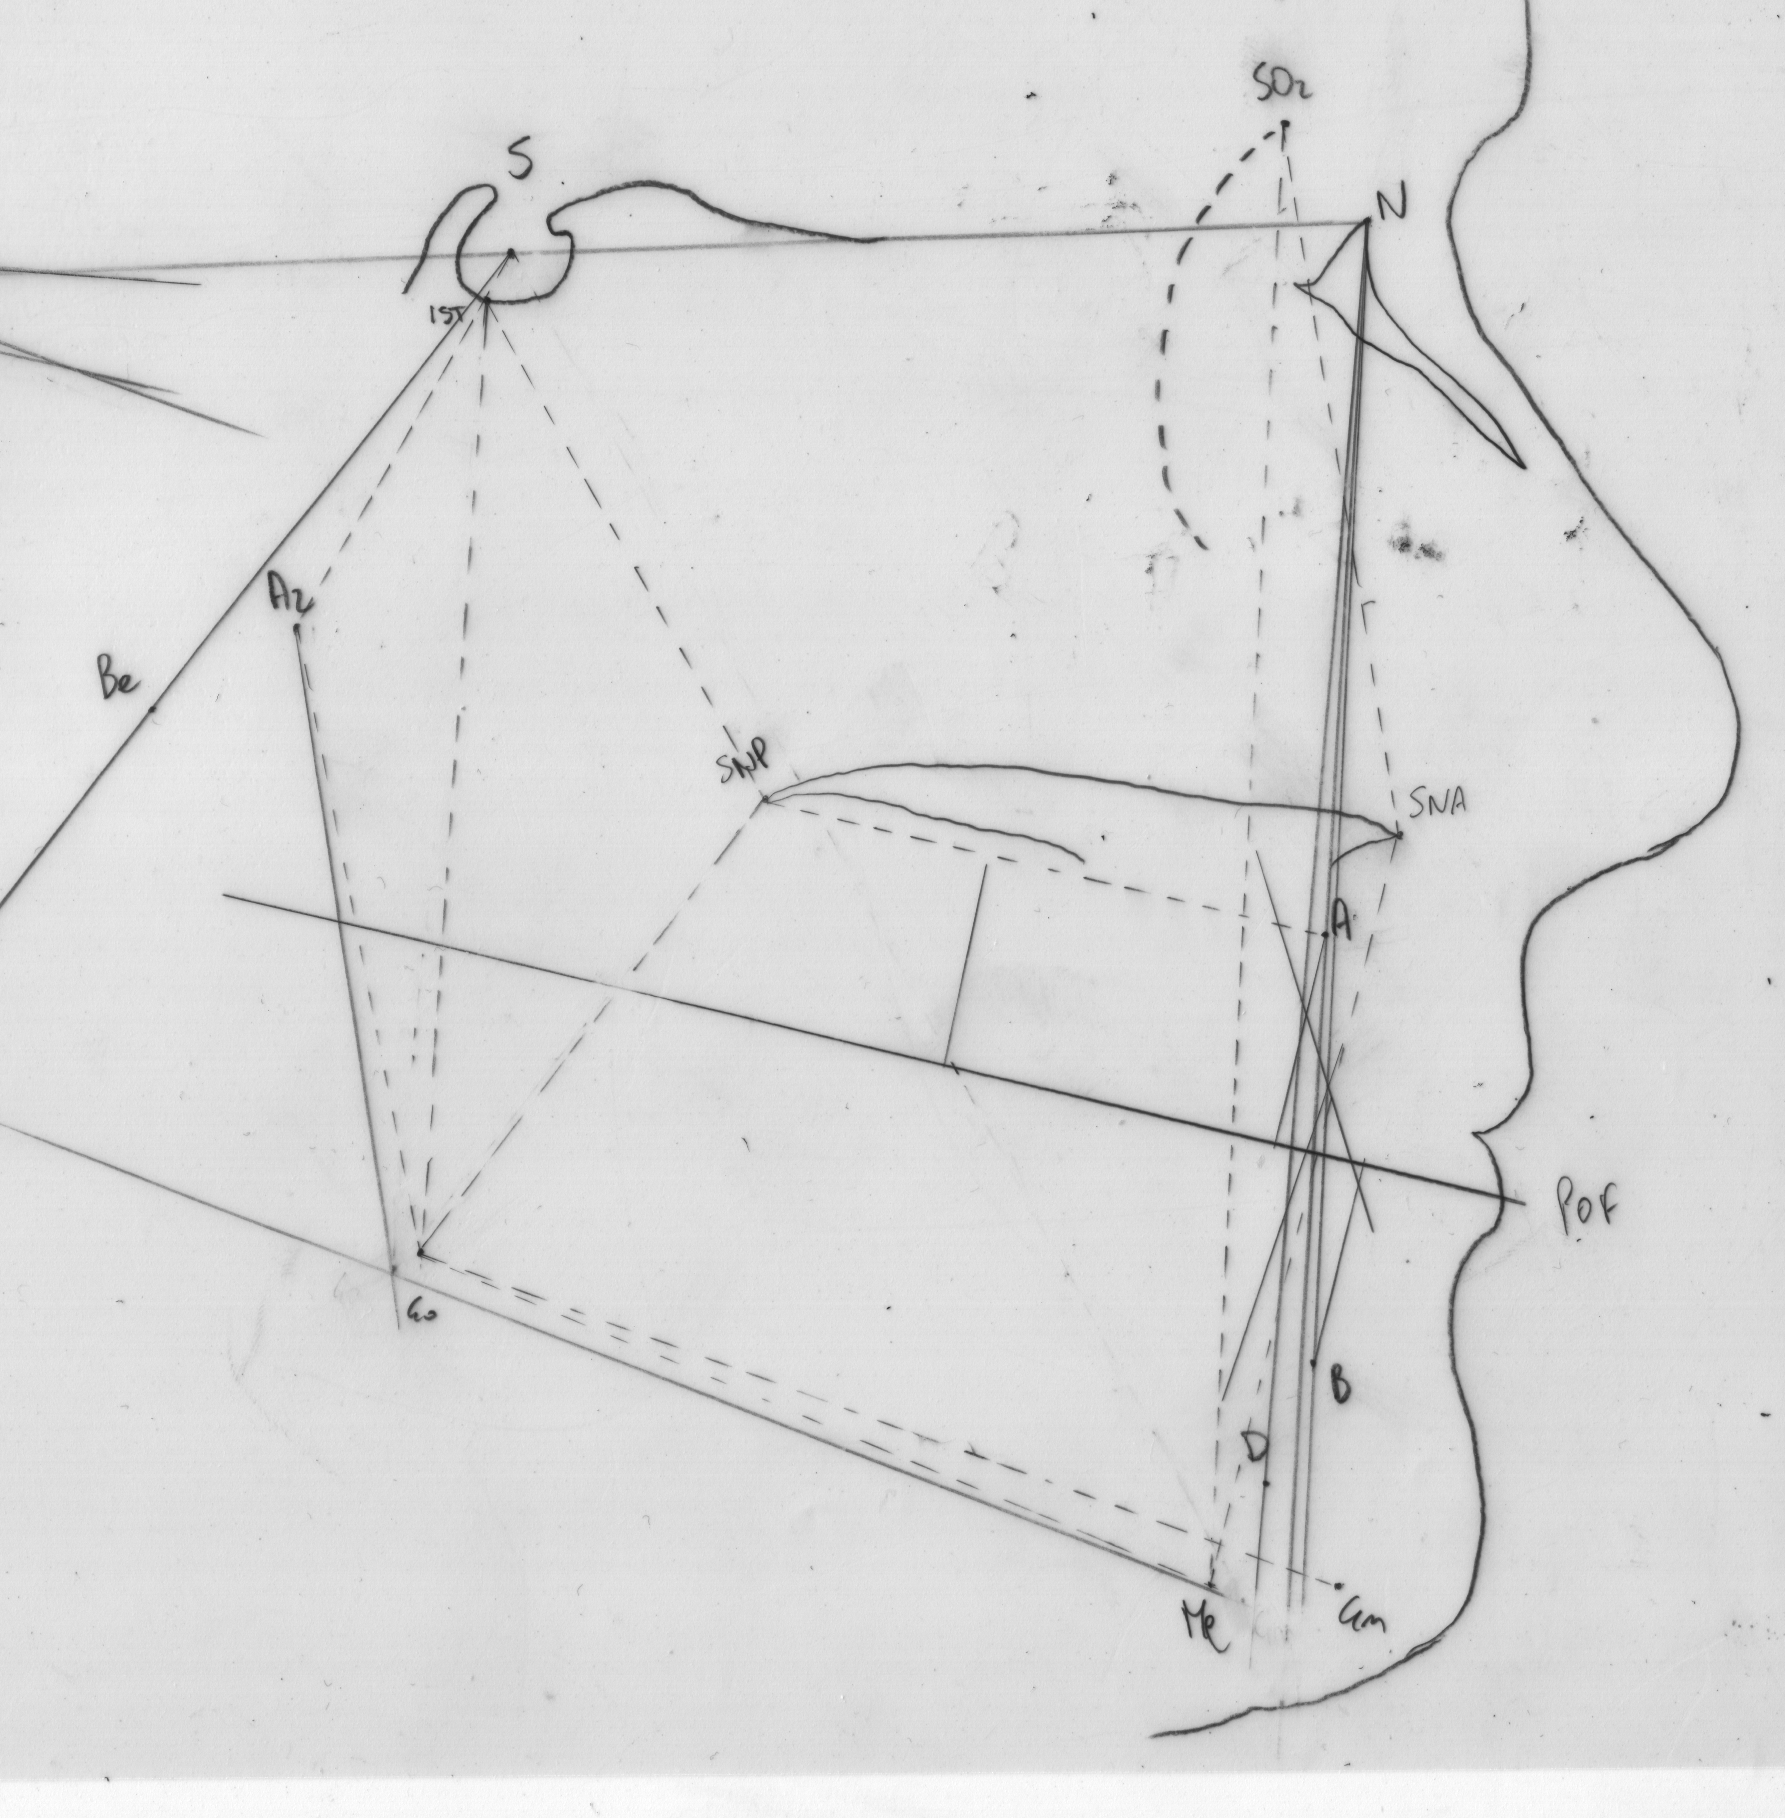 SOr
S
N
IST
Ar
Be
SNP
SNA
A
POF
Go
B
D
Me
Gm